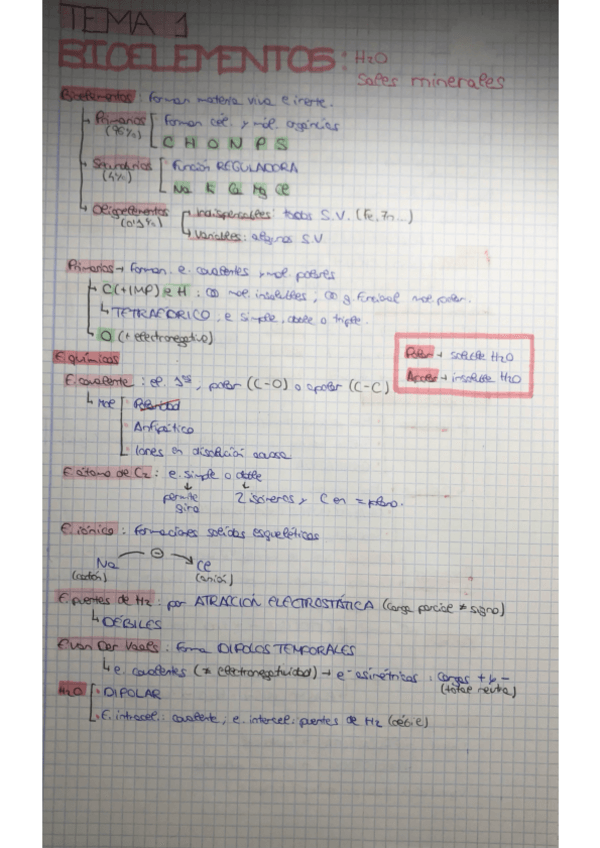 TEMA 1
BIOELEMENTOS: H2O
Sales minerales
Bioelementos: Forman materia viva e inerte.
Primarios (96%) Forman cél. y mól. orgánicas
C H O N P S
Secundarios (4%) Función REGULADORA
Na K Ca Mg Cl
Oligoelementos (0'1%) indispensables: todos S.V. (Fe, Zn...)
Variables: algunos S.V.
Primarios → Forman e. covalentes y mol. polares
C (+ IMP) e H: mol. insolubles, g funcional mol. polar.
TETRAÉDRICO, e simple, doble o triple.
O (+ electronegativo)
Polar → soluble H2O
Apolar → insoluble H2O
E. químicos
E. covalente: polar (C-O) o apolar (C-C)
Mol Polaridad
Anfipático
Iones en disolución acuosa
E. átomo de C2: e. simple o doble
permite giro
2 isómeros y C en = plano.
E. iónico: Formaciones sólidas esqueléticas
Na → Cl
(catión) (anión)
E. puentes de H2: por ATRACCIÓN ELECTROSTÁTICA (carga parcial ≠ signo)
DÉBILES
E. van Der Vaals: forma DIPOLOS TEMPORALES
e. covalentes (≠ electronegatividad) → e⁻ asimétricas: cargas + y −
(total neutra)
H2O · DIPOLAR
· E. intracel.: covalente; e. intercel.: puentes de H2 (débil)